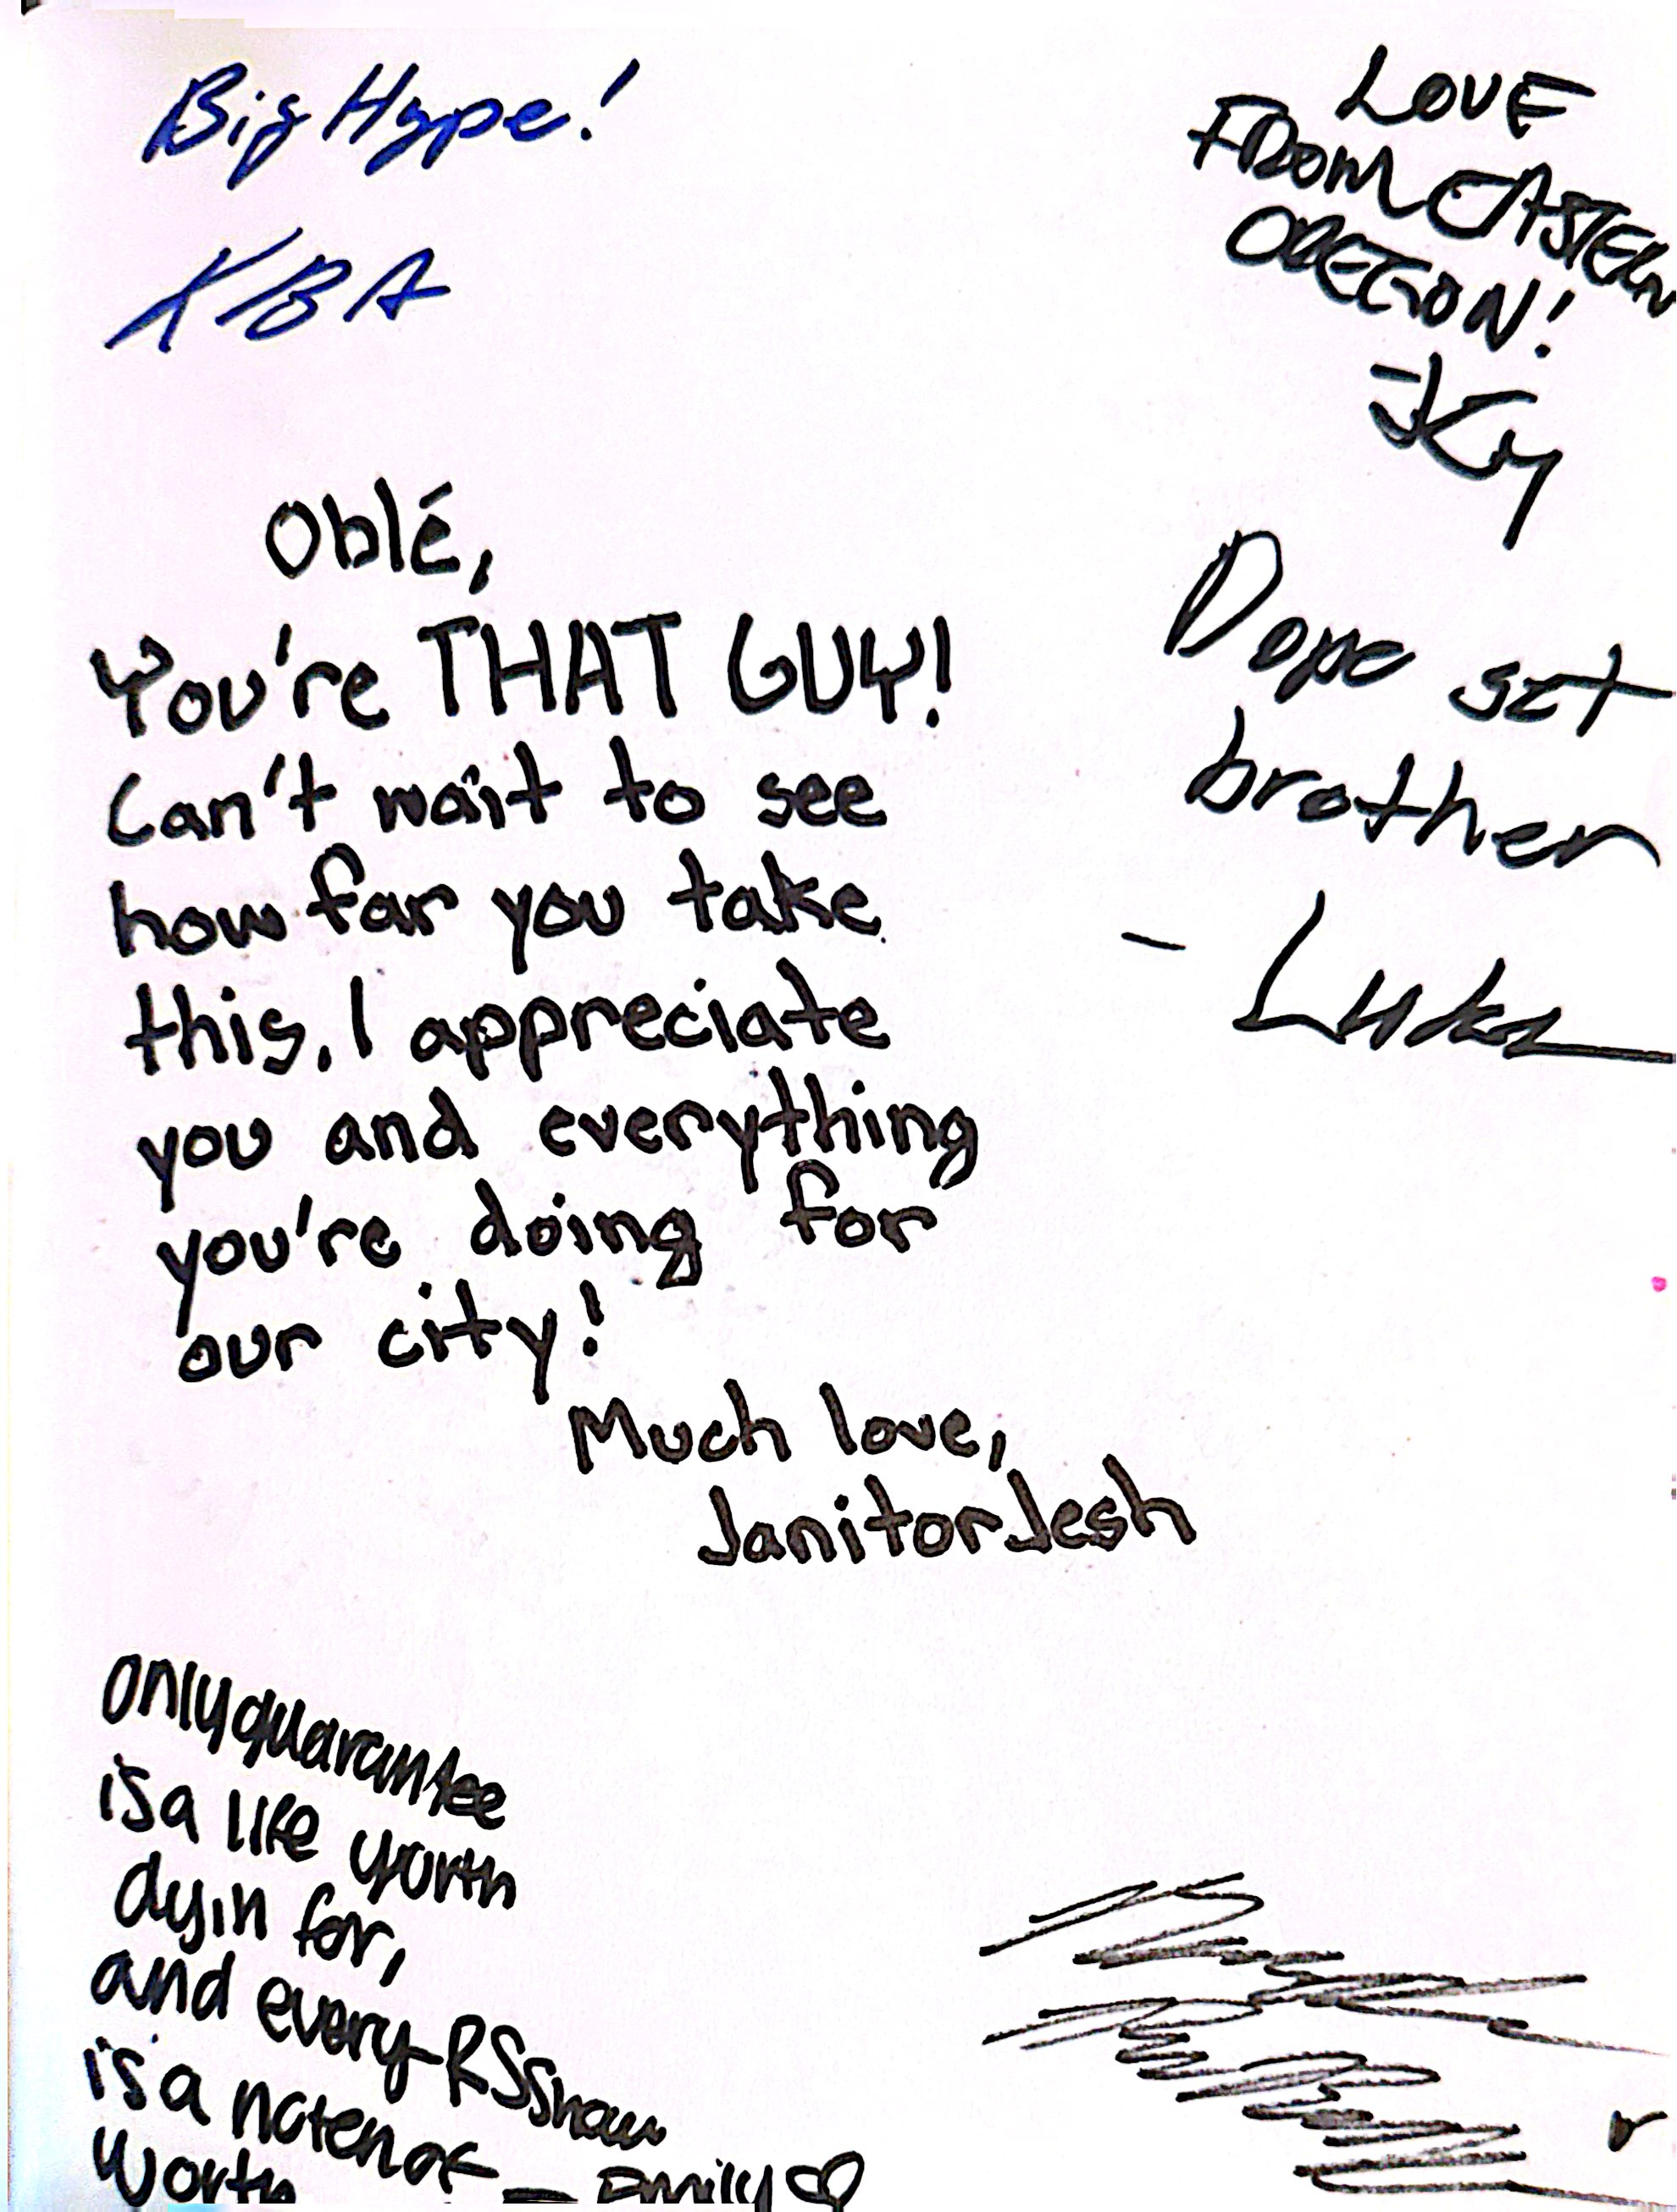 Big Hype!
KBA
LOVE
FROM EASTERN
OREGON!
-Ky
Oblé,
You're THAT GUY!
Can't wait to see
how far you take
this. I appreciate
you and everything
you're doing for
our city!
Much love,
JanitorJesh
Dope set
brother
- Luke
only guarantee
is a life worth
dyin for,
and every RS show
is a
worth - Emily ♡